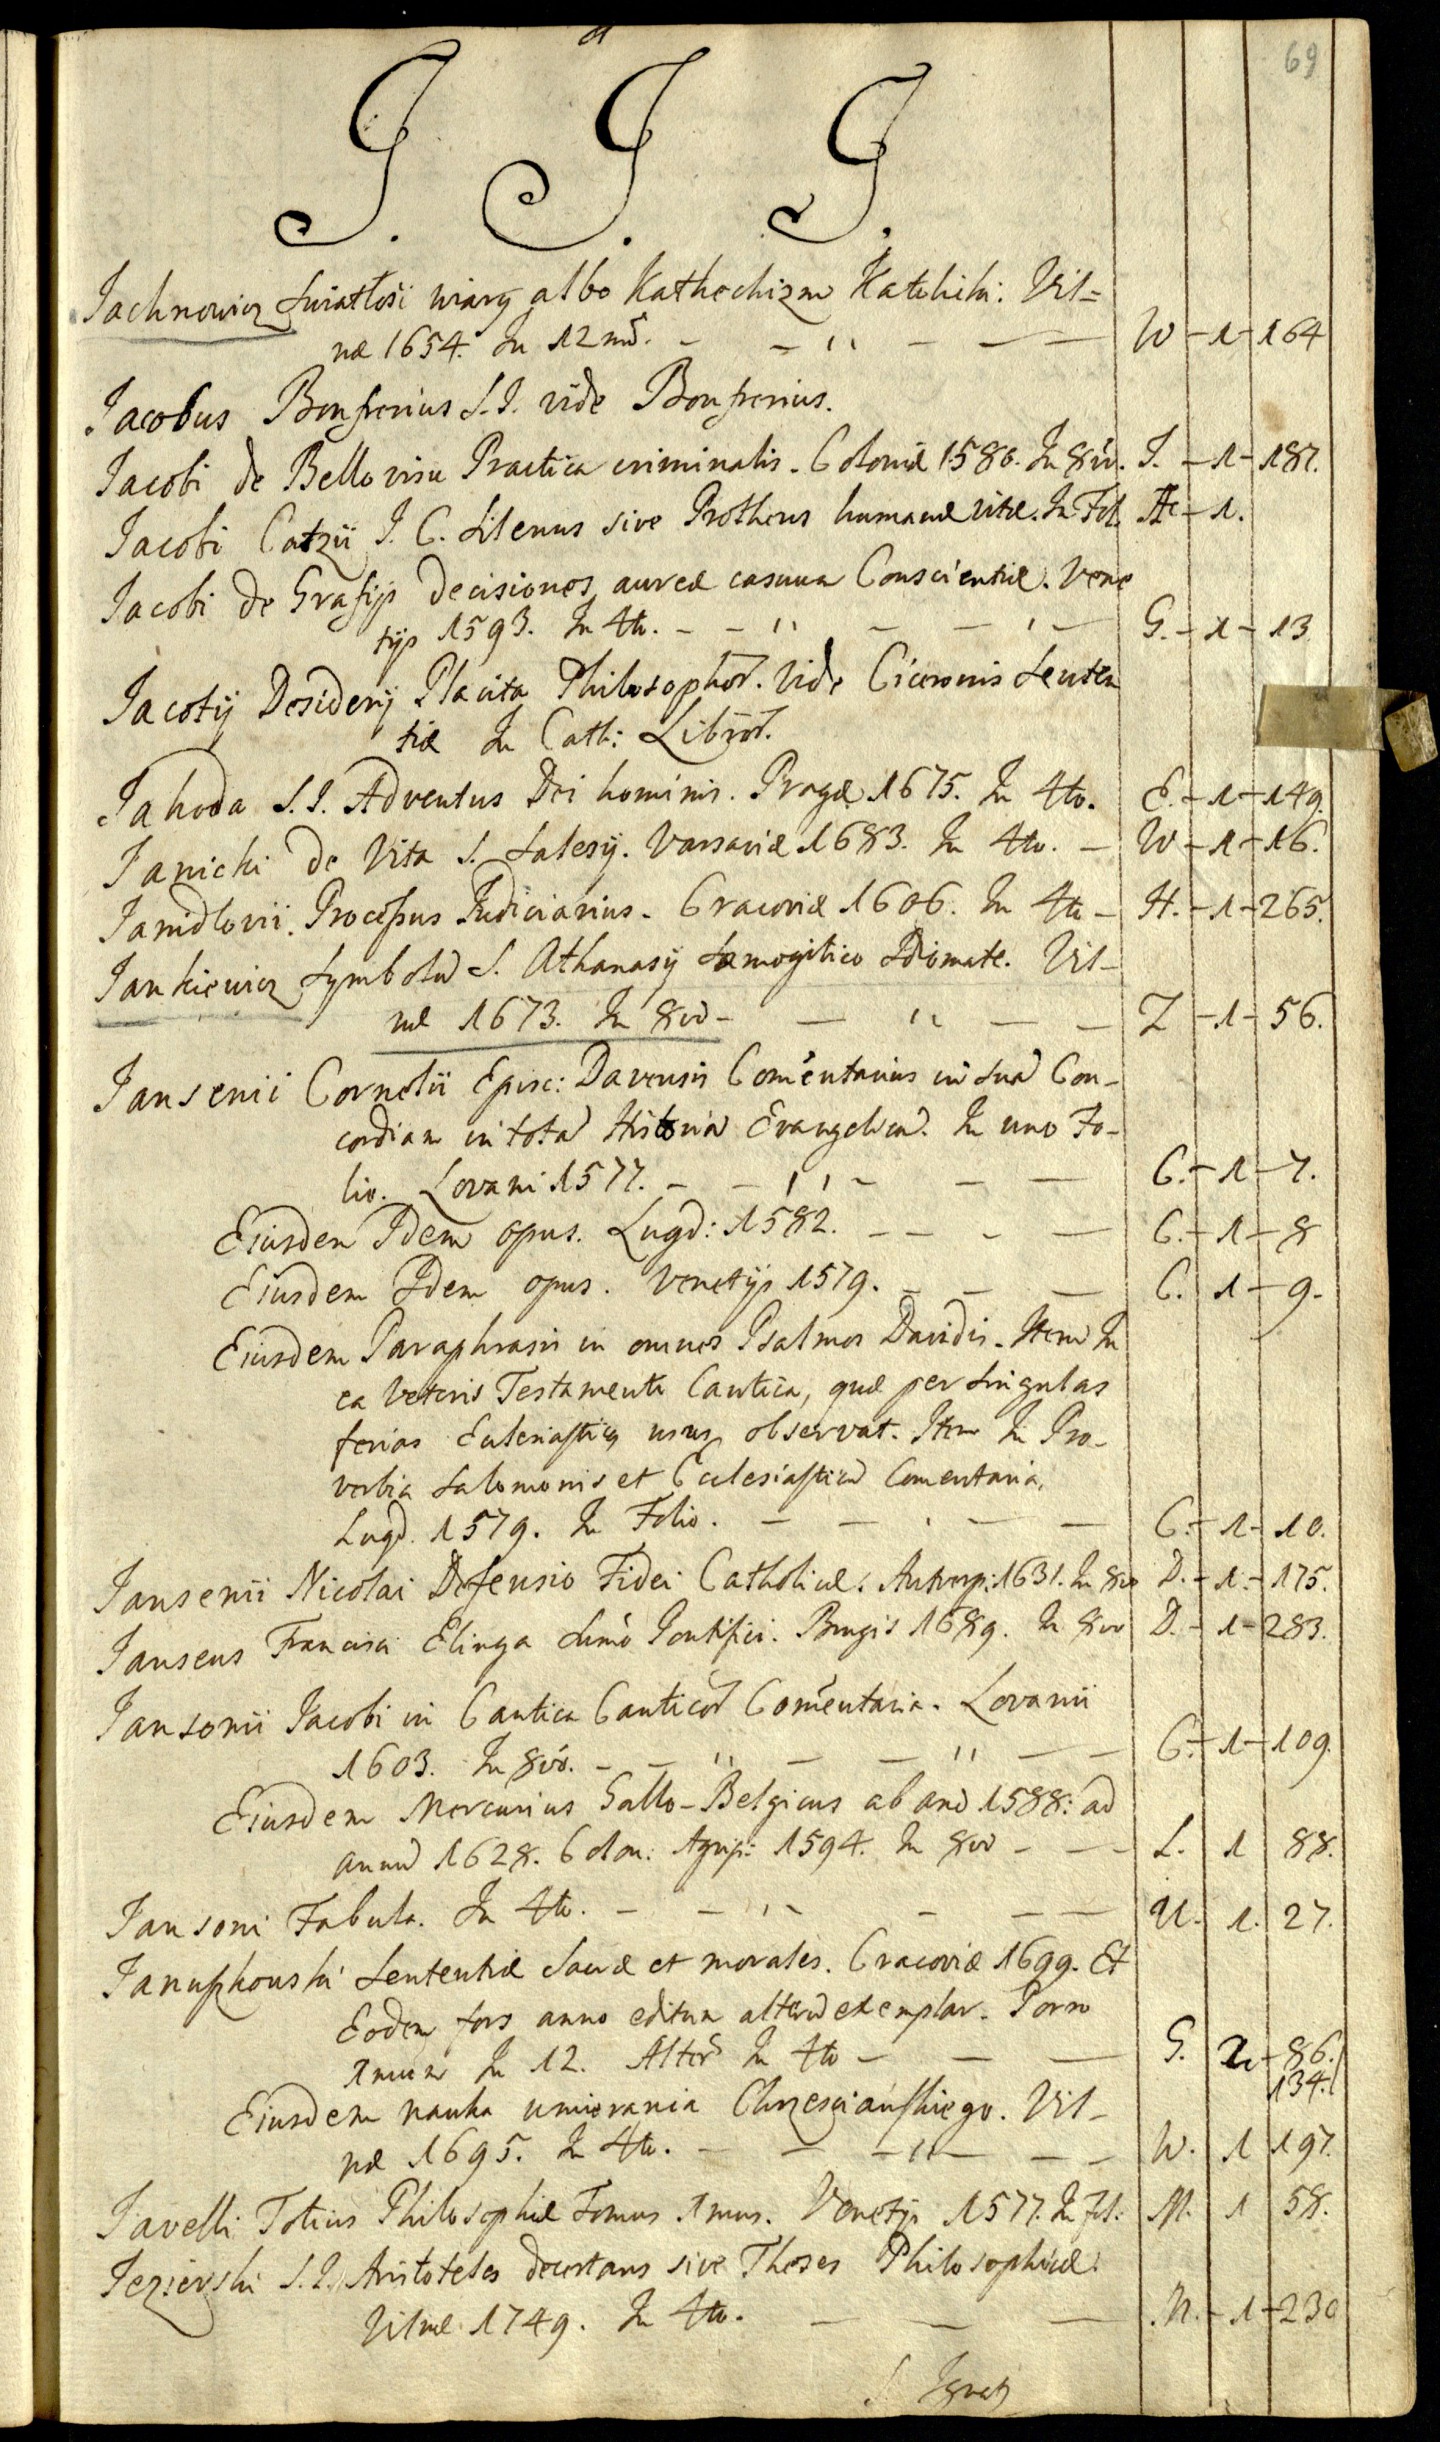 69
J. J. J.
Jachnowicz Swiatłosc wiary albo Kathechizm Katolicki. Vil=
næ 1654. In 12mo. W - 1 - 164
Jacobus Bonfrerius S.J. vide Bonfrerius.
Jacobi de Bello visu Practica criminalis. Coloniæ 1580. In 8vo. J. - 1 - 187.
Jacobi Catzii J. C. Silenus sive Protheus humanæ vitæ. In Fol. - 1.
Jacobi de Grafijs Decisiones aureæ casuum Conscientiæ. Vene
tijs 1593. In 4to. G. - 1 - 13
Jacotij Desiderij Placita Philosophor. Vide Ciceronis Senten
tiæ In Cath: Libror.
Jahoda S.J. Adventus Dei hominis. Pragæ 1675. In 4to. E. - 1 - 149.
Janicki de Vita S. Salesij. Varsaviæ 1683. In 4to. - W - 1 - 16.
Janidlovii Processus Judiciarius. Cracoviæ 1606. In 4to - H. - 1 - 265.
Jankiewicz Symbolu S. Athanasij Samogitico Idiomate. Vil-
næ 1673. In 8vo - Z - 1 - 56.
Jansenii Cornelii Episc: Davensis Comentarius in sua Con-
cordiam in tota Historia Evangelica. In uno Fo-
lio. Lovani 1577. C. - 1 - 7.
Eiusdem Idem opus. Lugd: 1582. C. - 1 - 8
Eiusdem Idem opus. Venetijs 1579. C. 1 - 9.
Eiusdem Paraphrasis in omnes Psalmos Davidis. Item In
ea Veteris Testamenti Cantica, quæ per singulas
ferias Eclesiasticus usus observat. Item In Pro-
verbia Salomonis et Eclesiasticu Comentaria,
Lugd. 1579. In Folio. C. - 1 - 10.
Jansenii Nicolai Defensio Fidei Catholicæ. Antverp: 1631. In 8vo D. - 1. - 175.
Jansens Francisci Elinga Sumo Pontifici. Brugis 1689. In 8vo D. - 1 - 283.
Jansonii Jacobi in Cantica Canticor Comentaria. Lovanii
1603. In 8vo. C. - 1 - 109.
Eiusdem Mercurius Gallo-Belgicus ab ano 1588: ad
annu 1628. Colon: Agrip: 1594. In 8vo - L. 1 88.
Jansoni Fabula. In 4to. U. 1. 27.
Januszkowski Sententiæ Sacræ et morales. Cracoviæ 1699. Et
Eodem fors anno editum alteru exemplar. Porro
1mum In 12. Alter In 4to - G. 2 - 86.
134.
Eiusdem nauka umierania Chrzesciańskiego. Vil-
næ 1695. In 4to. W. 1 197.
Javelli Totius Philosophiæ Tomus 1mus. Venetijs 1577. In fol: M. 1 58.
Jezierski S.J. Aristoteles decertans sive Theses Philosophicæ.
Vilnæ 1749. In 4to. N. - 1 - 230
S. Ignatij